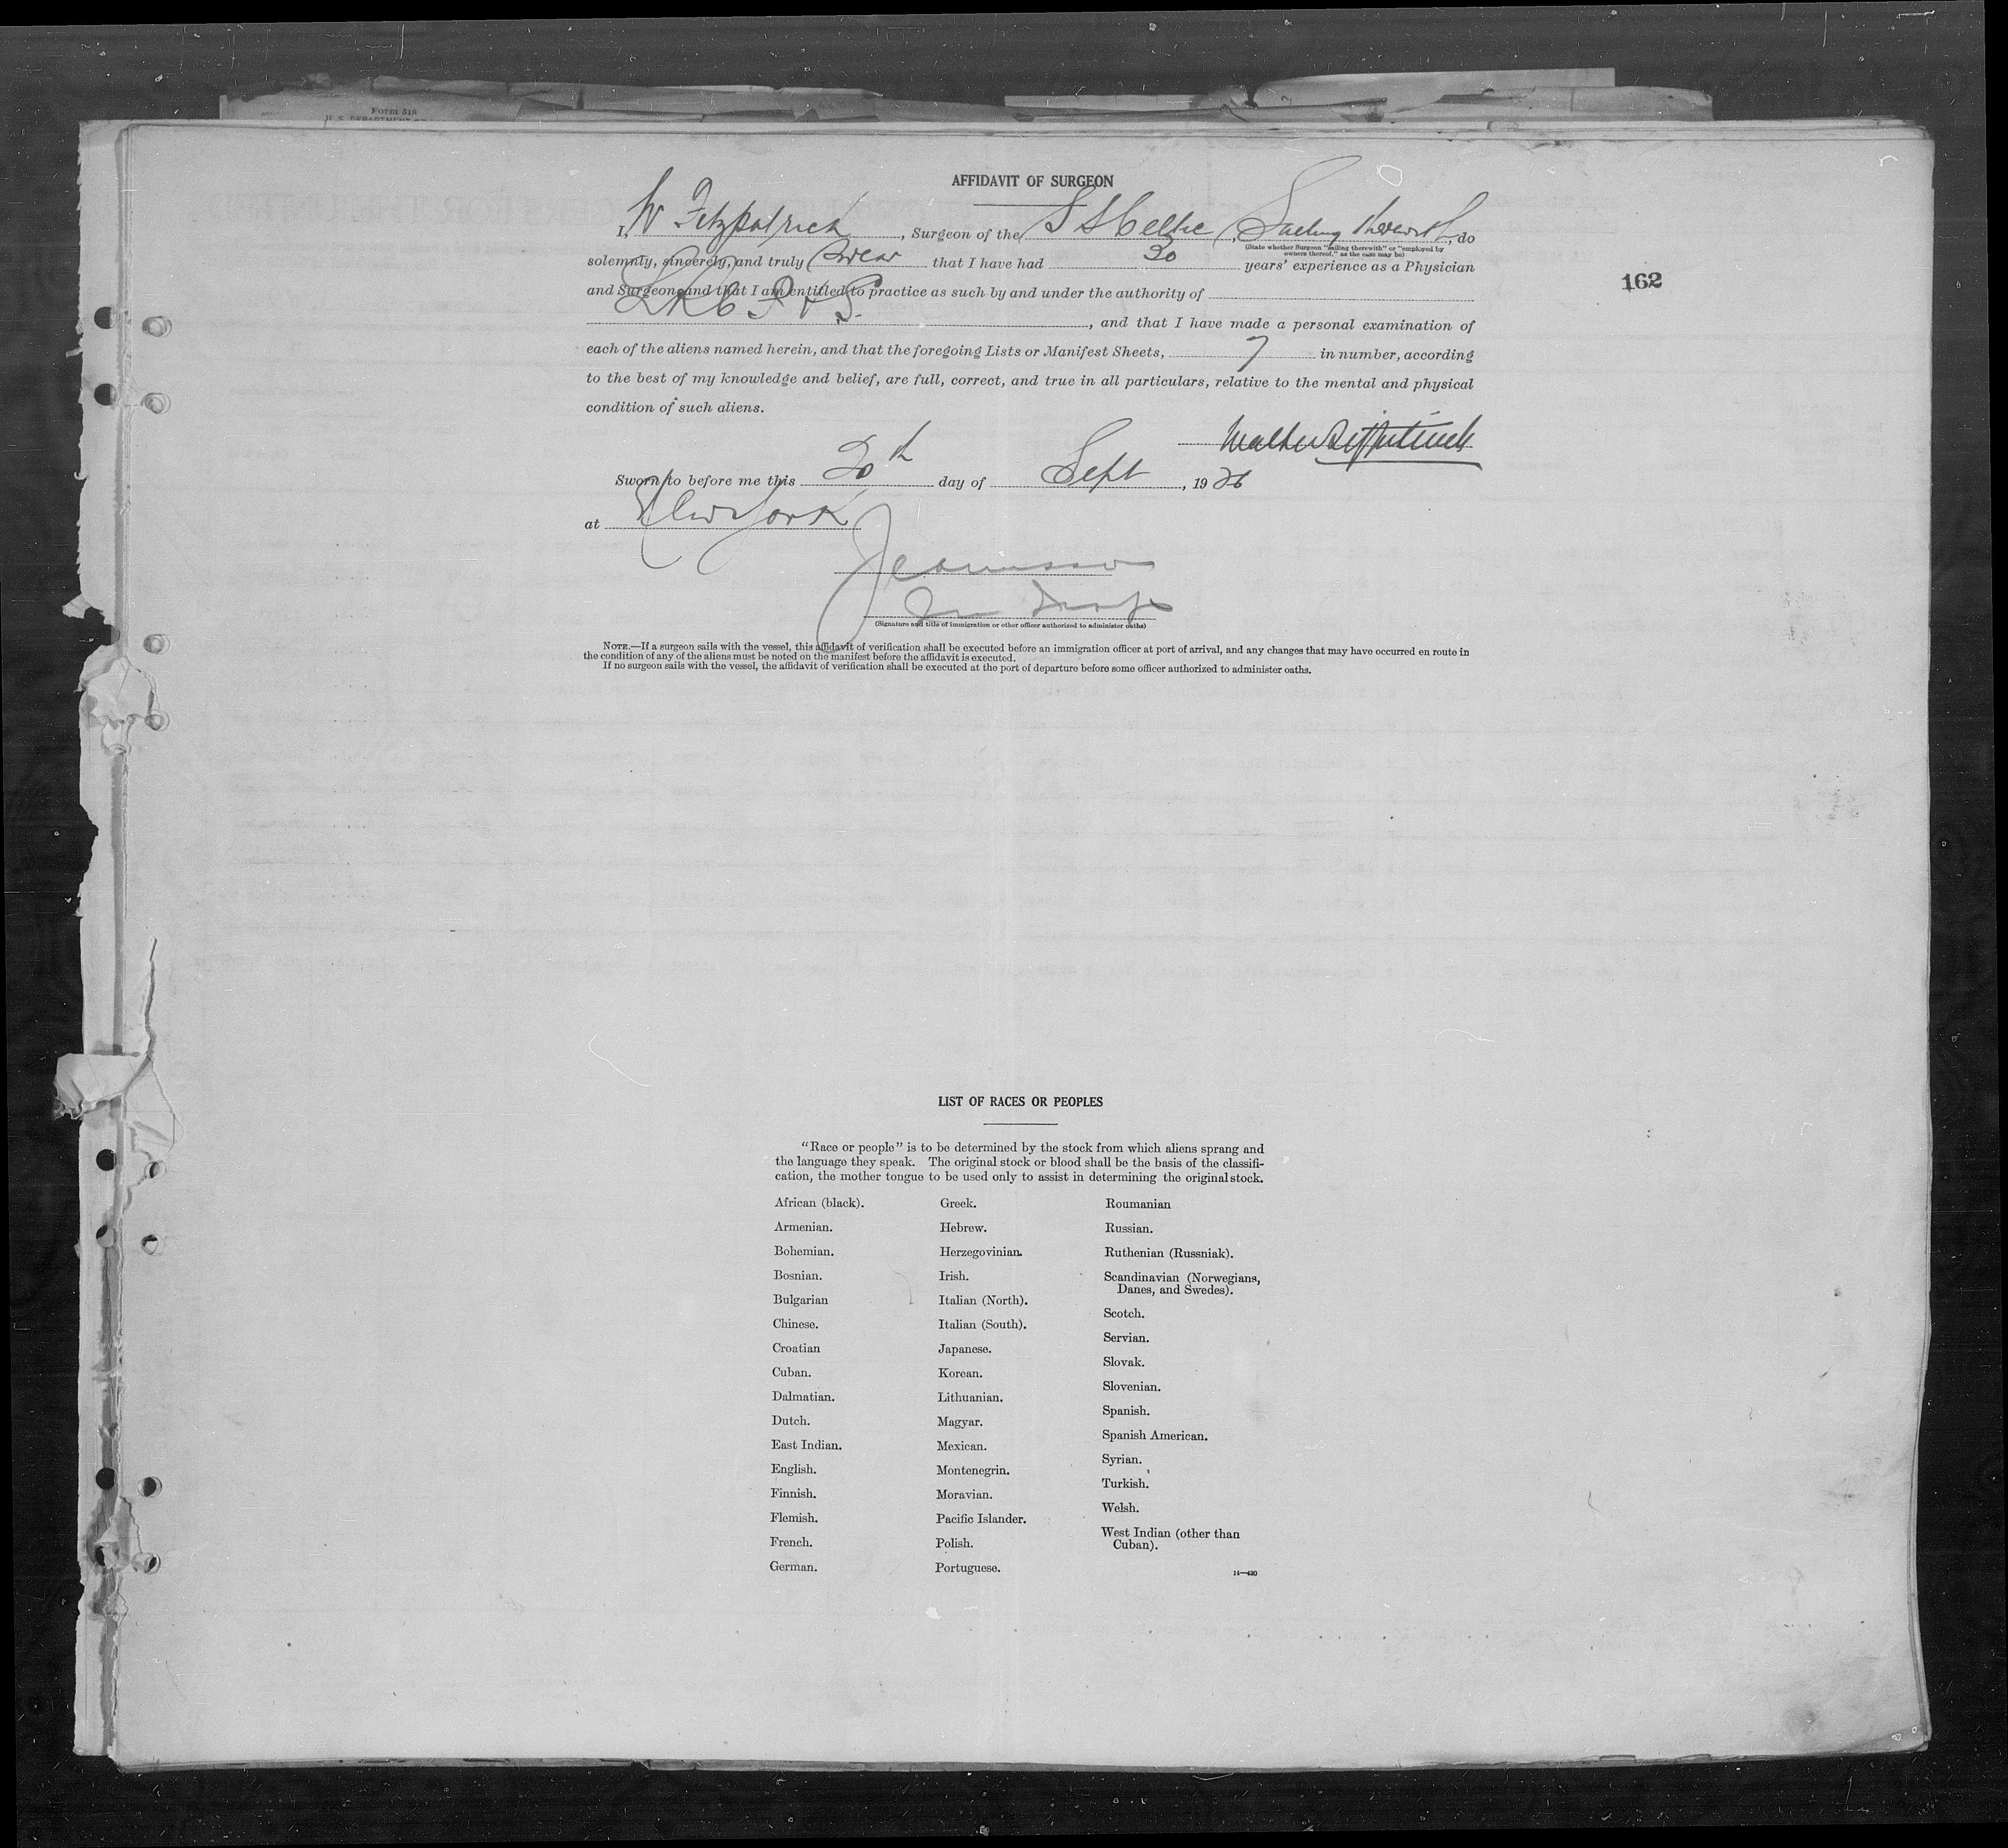 Form 518
U. S. DEPARTMENT
AFFIDAVIT OF SURGEON
I, W Fitzpatrick, Surgeon of the S S Celtic, Sailing therewith, do
(State whether Surgeon "sailing therewith" or "employed by
owners thereof," as the case may be)
solemnly, sincerely, and truly swear that I have had 30 years' experience as a Physician
162
and Surgeon and that I am entitled to practice as such by and under the authority of
LRCP & S., and that I have made a personal examination of
each of the aliens named herein, and that the foregoing Lists or Manifest Sheets, 7 in number, according
to the best of my knowledge and belief, are full, correct, and true in all particulars, relative to the mental and physical
condition of such aliens.
Walter Fitzpatrick
Sworn to before me this 20th day of Sept, 1926
at New York
(Signature and title of immigration or other officer authorized to administer oaths)
NOTE.—If a surgeon sails with the vessel, this affidavit of verification shall be executed before an immigration officer at port of arrival, and any changes that may have occurred en route in
the condition of any of the aliens must be noted on the manifest before the affidavit is executed.
If no surgeon sails with the vessel, the affidavit of verification shall be executed at the port of departure before some officer authorized to administer oaths.
LIST OF RACES OR PEOPLES
"Race or people" is to be determined by the stock from which aliens sprang and
the language they speak. The original stock or blood shall be the basis of the classifi-
cation, the mother tongue to be used only to assist in determining the original stock.
African (black).
Armenian.
Bohemian.
Bosnian.
Bulgarian
Chinese.
Croatian
Cuban.
Dalmatian.
Dutch.
East Indian.
English.
Finnish.
Flemish.
French.
German.
Greek.
Hebrew.
Herzegovinian.
Irish.
Italian (North).
Italian (South).
Japanese.
Korean.
Lithuanian.
Magyar.
Mexican.
Montenegrin.
Moravian.
Pacific Islander.
Polish.
Portuguese.
Roumanian
Russian.
Ruthenian (Russniak).
Scandinavian (Norwegians,
Danes, and Swedes).
Scotch.
Servian.
Slovak.
Slovenian.
Spanish.
Spanish American.
Syrian.
Turkish.
Welsh.
West Indian (other than
Cuban).
14—430